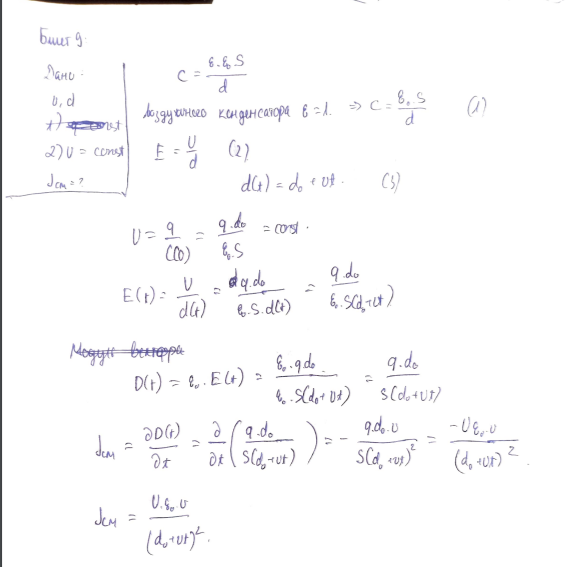 Билет 9:
Дано:
υ, d
2) U = const
Jсм = ?
C = ε·ε₀ S / d
воздушного конденсатора ε = 1. ⇒ C = ε₀·S / d (1)
E = U / d (2)
d(t) = d₀ + υt. (3)
U = q / C(0) = q·d₀ / ε₀·S = const.
E(t) = U / d(t) = q·d₀ / ε₀·S·d(t) = q·d₀ / ε₀·S(d₀+υt)
D(t) = ε₀·E(t) = ε₀·q·d₀ / ε₀·S(d₀+υt) = q·d₀ / S(d₀+υt)
Jсм = ∂D(t) / ∂t = ∂ / ∂t (q·d₀ / S(d₀+υt)) = - q·d₀·υ / S(d₀+υt)² = -Uε₀·υ / (d₀+υt)².
Jсм = U·ε₀·υ / (d₀+υt)².